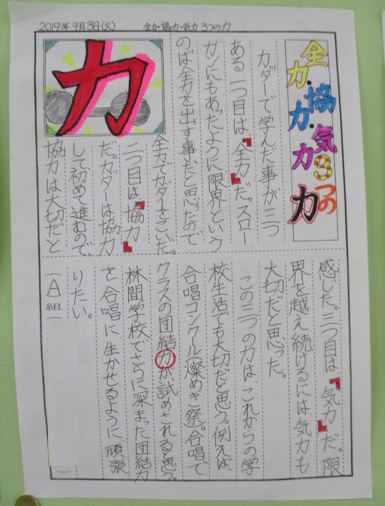 2019年9月3日(火)
全力・協力・気力 3つの力
全力・協力・気力3つの力
力
カッターで学んだ事が三つ
ある。一つ目は「全力」だ。スロー
ガンにもあったように限界という
のは全力を出す事だと思ったので
全力でカッターをこいだ。
二つ目は「協力」
だ。カッターは協力
して初めて進むので、
協力は大切だと
感じた。三つ目は「気力」だ。限
界を越え続けるには気力も
大切だと思った。
この三つの力は、これからの学
校生活でも大切だと思う。例えば
合唱コンクール深めき祭。合唱で
クラスの団結力が試めされると思う。
林間学校でさらに深まった団結力
を合唱に生かせるように頑張
りたい。
(A組
)